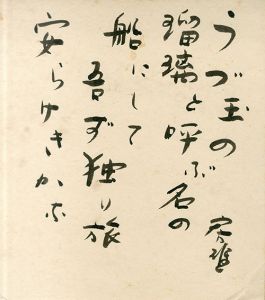 うづ玉の
瑠璃と呼ぶ名の
船にして
吾ず独り旅
安らけきかな